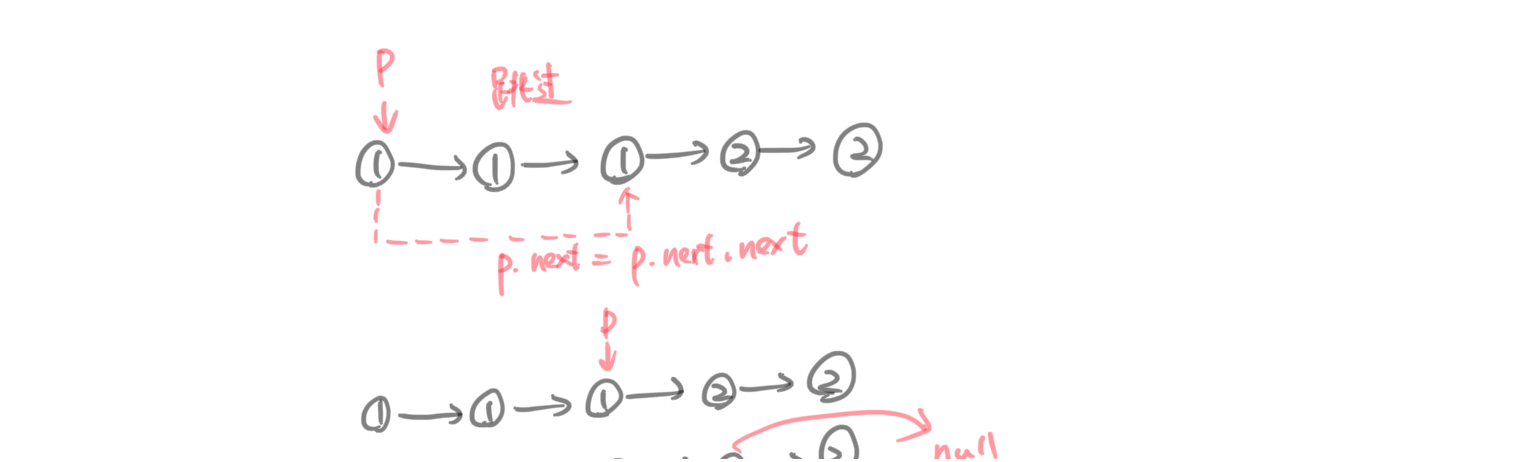 p
跳过
① → ① → ① → ② → ②
p.next = p.next.next
p
① → ① → ① → ② → ②
null